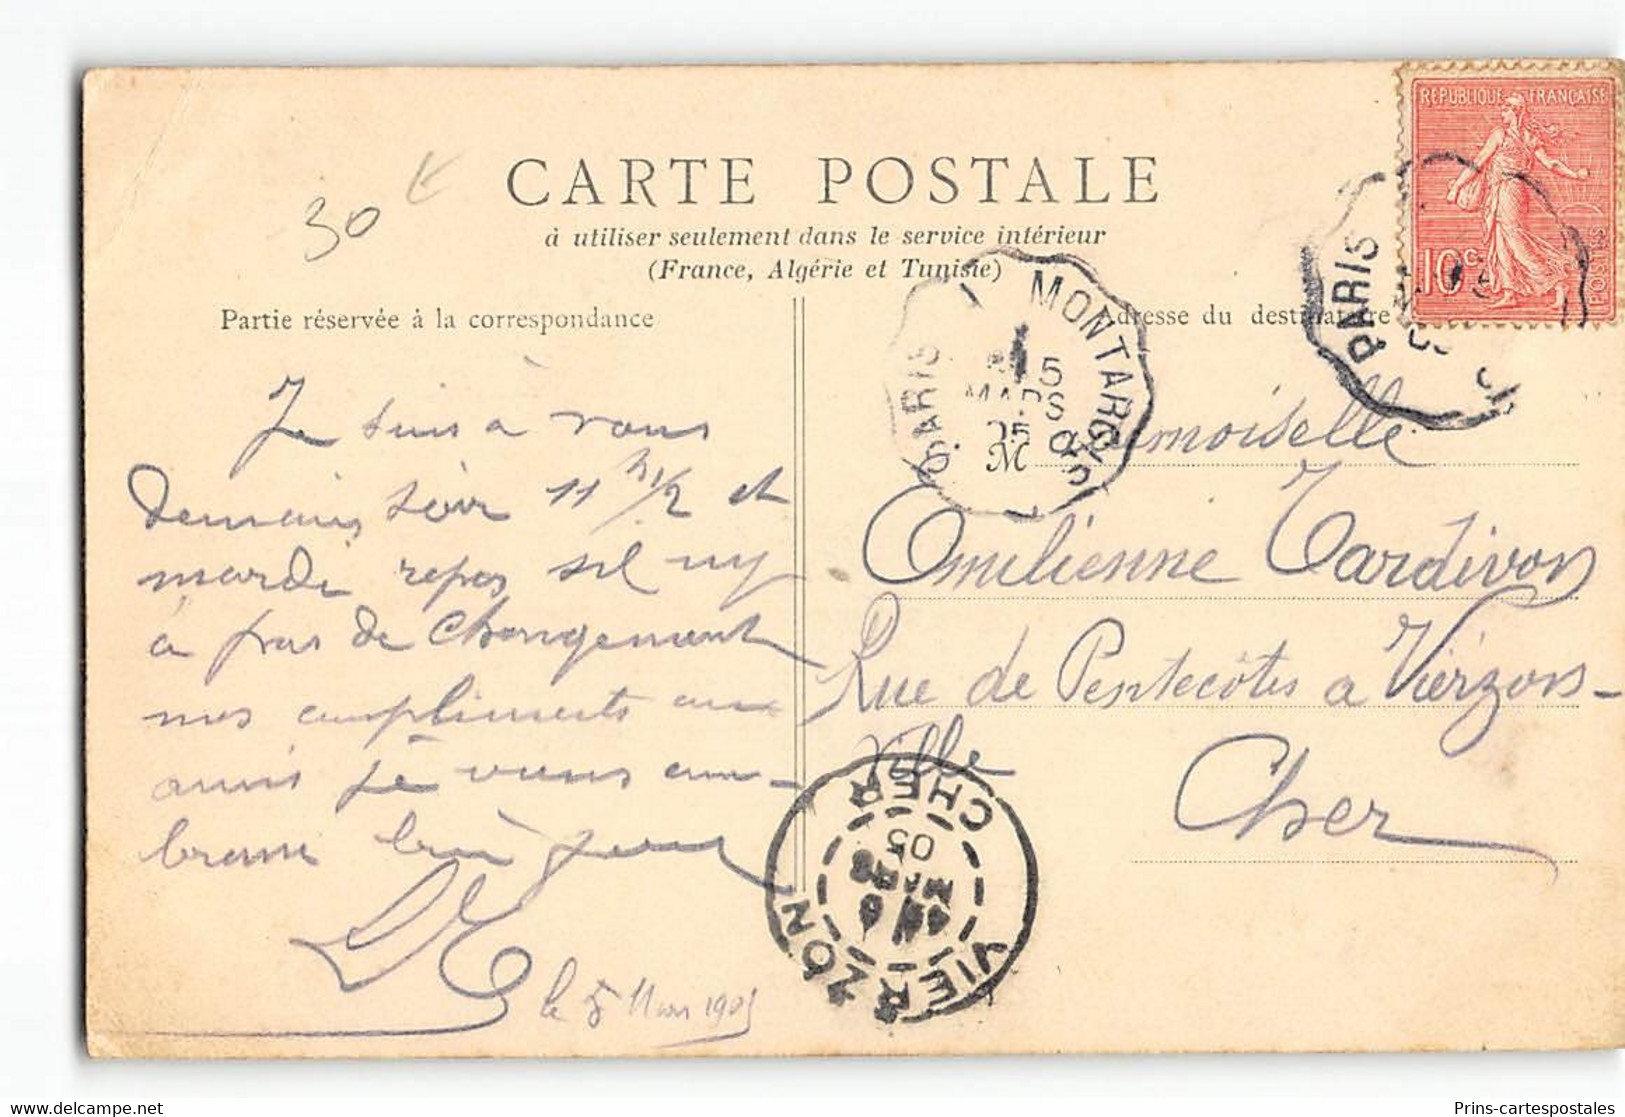 CARTE POSTALE
à utiliser seulement dans le service intérieur
(France, Algérie et Tunisie)
30 €
Partie réservée à la correspondance
Je suis à vous
demain soir 11 h 1/2 et
mardi repos s'il ny
a pas de changement
mes compliments aux
amis je vous em-
brasse
le 5 Mars 1905
Adresse du destinataire
Mademoiselle
Emilienne Tardivon
Rue de Pentecôtes a Vierzon-
Ville
Cher
REPUBLIQUE FRANÇAISE
10 c
POSTES
PARIS
MONTARGIS
PARIS
5
MARS
05
VIERZON
CHER
05
www.delcampe.net
Prins-cartespostales